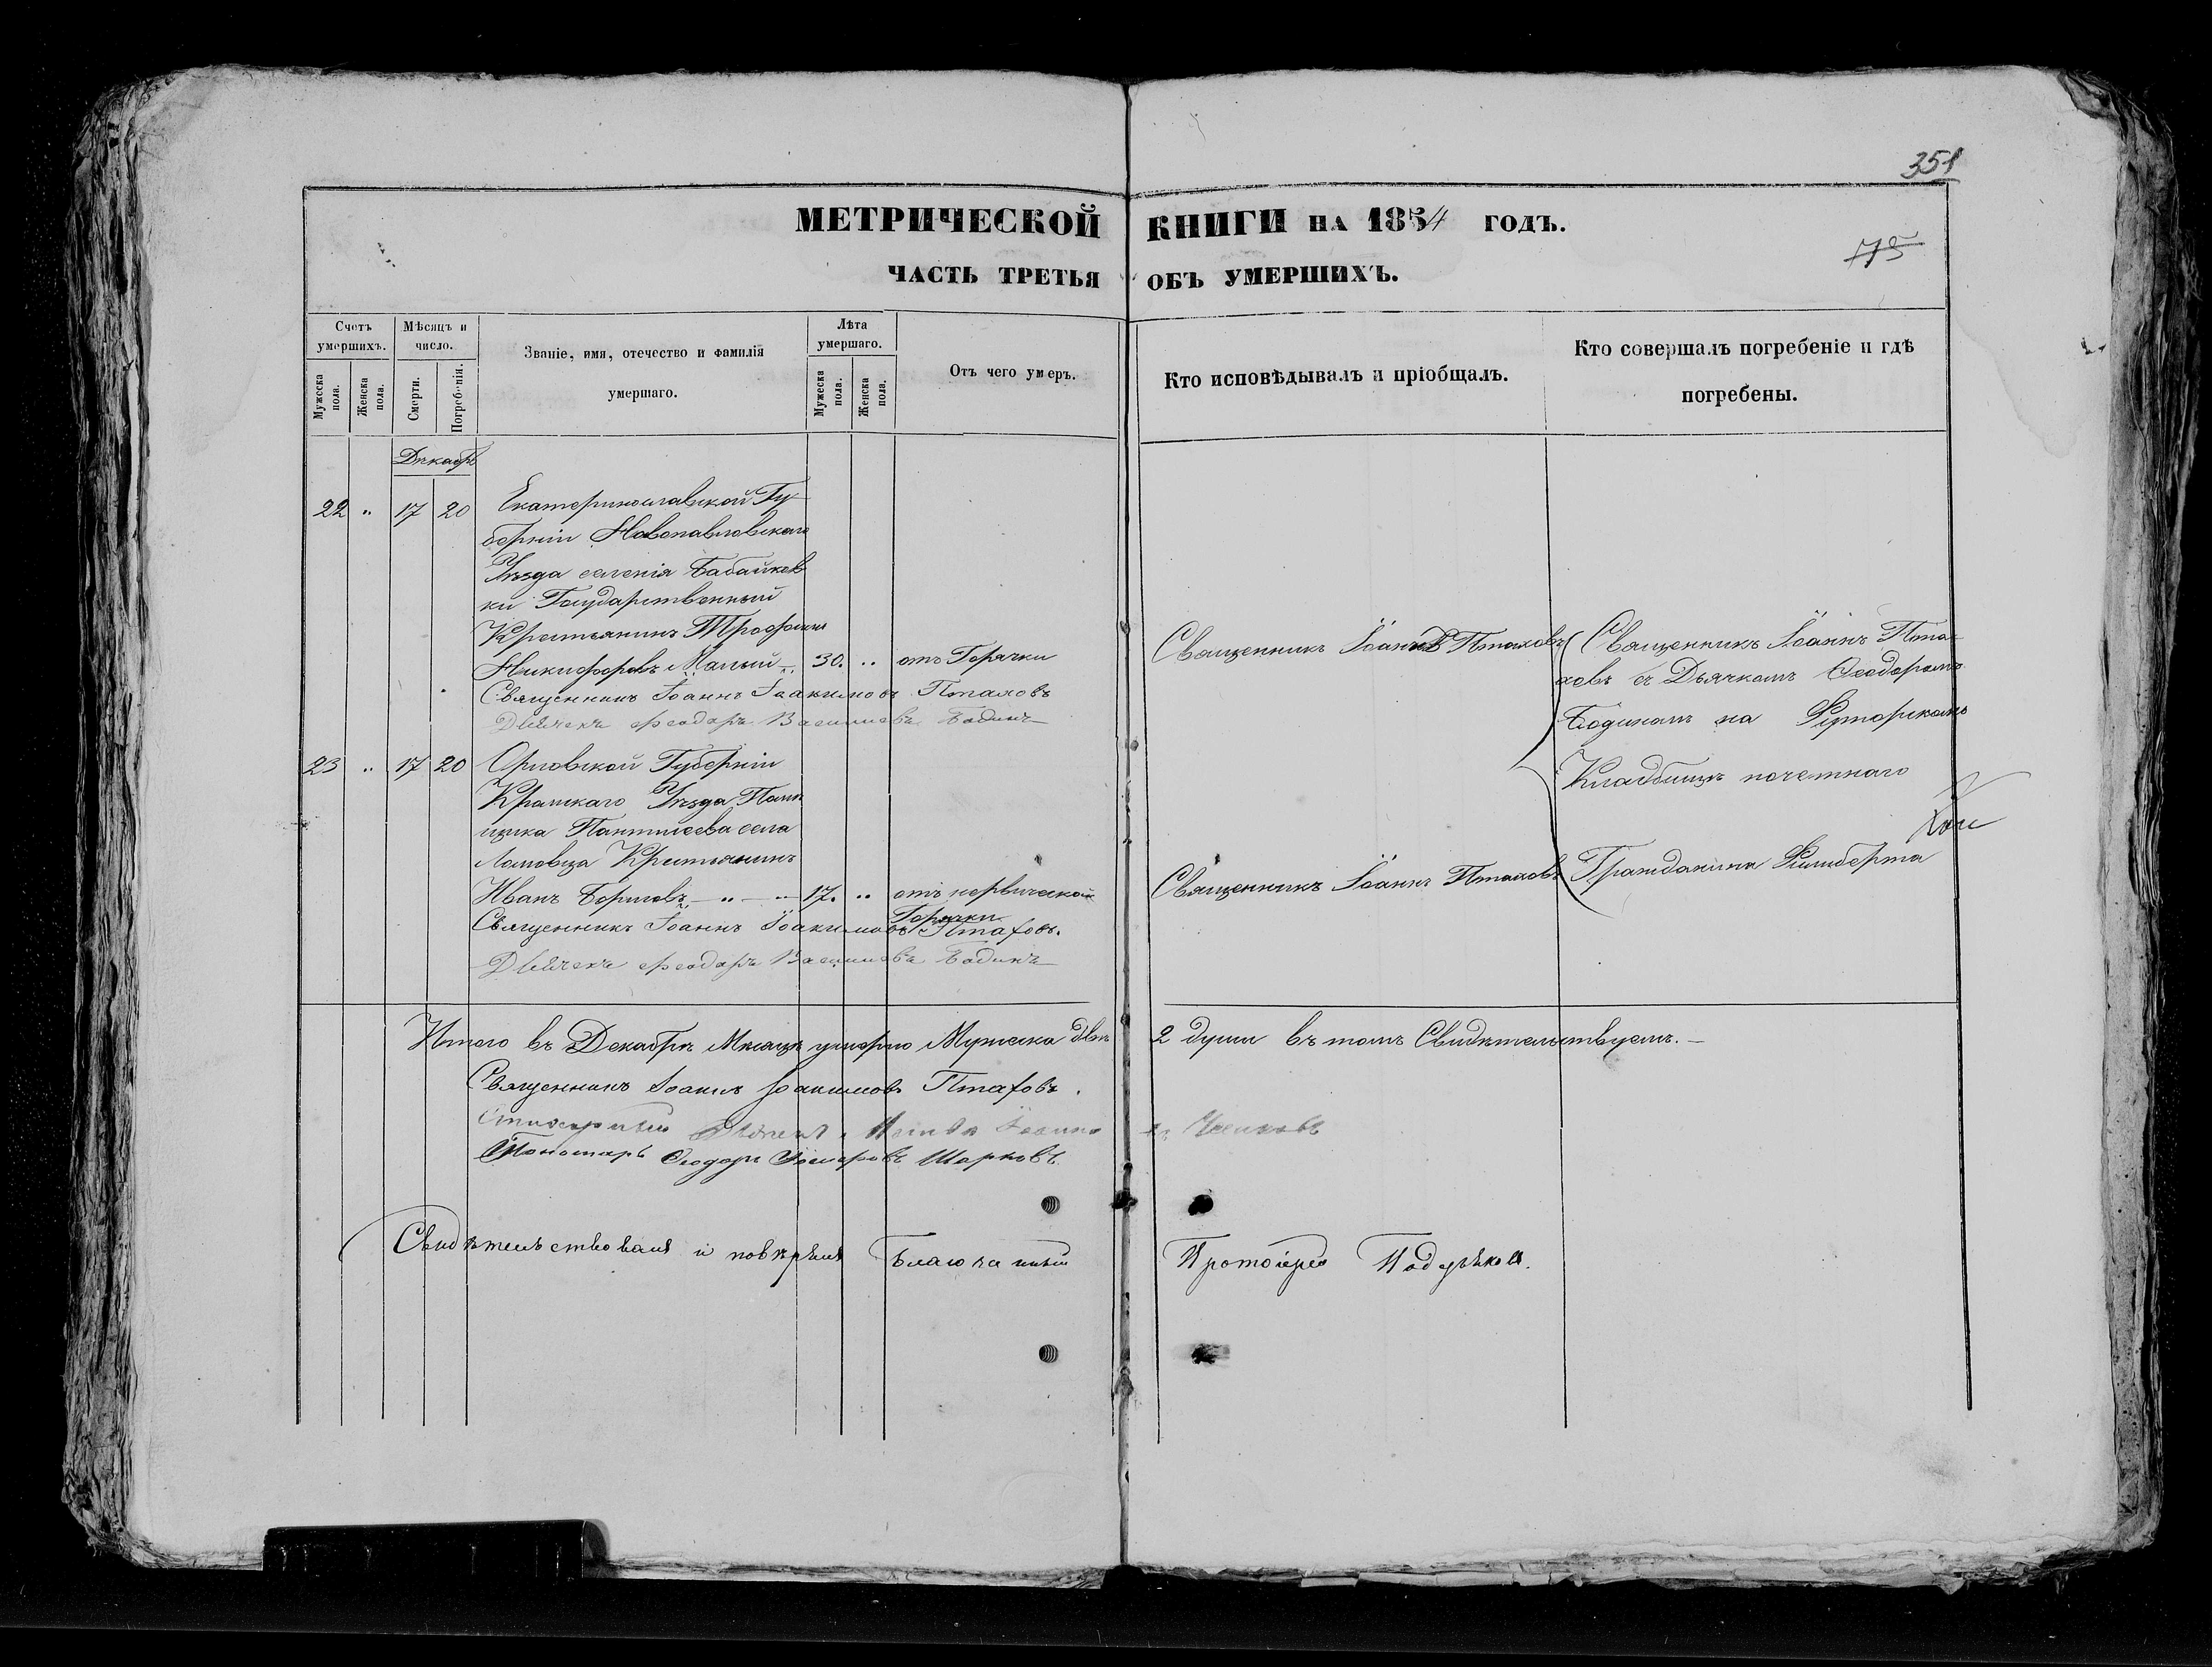 351
МЕТРИЧЕСКОЙ КНИГИ НА 1854 ГОДЪ.
175
ЧАСТЬ ТРЕТЬЯ ОБЪ УМЕРШИХЪ.
Счетъ умершихъ.
Мужеска пола.
Женска пола.
Мѣсяцъ и число.
Смерти.
Погребенія.
Званіе, имя, отечество и фамилія
умершаго.
Лѣта умершаго.
Мужеска пола.
Женска пола.
Отъ чего умеръ.
Кто исповѣдывалъ и пріобщалъ.
Кто совершалъ погребеніе и гдѣ
погребены.
Декабрь
22 " 17 20 Екатеринославской Гу-
берніи Новопавловскаго
Уѣзда селенія Бабайков
ки Государственный
Крестьянинъ Трофимъ
Никифоровъ Малый 30. " отъ Горячки
Священникъ Іоаннъ Іоакимовъ Птаховъ
Дьячекъ Феодоръ Васильевъ Бодинъ
Священникъ Іоаннъ Птаховъ
Священникъ Іоаннъ Пта-
ховъ съ Дьячкомъ Феодоромъ
Бодинымъ на Хуторскомъ
Кладбищѣ почетнаго
Гражданина Филиберта
23 " 17 20 Орловской Губерніи
Кромскаго Уѣзда Помѣ
щика Пантилеева села
Ломовца Крестьянинъ
Иванъ Борисовъ - " - " 17. " отъ нервической
Горячки
Священникъ Іоаннъ Іоакимовъ Птаховъ.
Дьячекъ Феодоръ Васильевъ Бодинъ
Священникъ Іоаннъ Птаховъ
Итого въ Декабрѣ Мѣсяцѣ умерло Мужеска двѣ 2 души въ томъ Свидѣтельствуемъ.
Священникъ Іоаннъ Іоакимовъ Птаховъ.
Пономарь Феодоръ Шарковъ
Свидѣтельствовалъ и повѣрялъ Благочинный Протоіерей